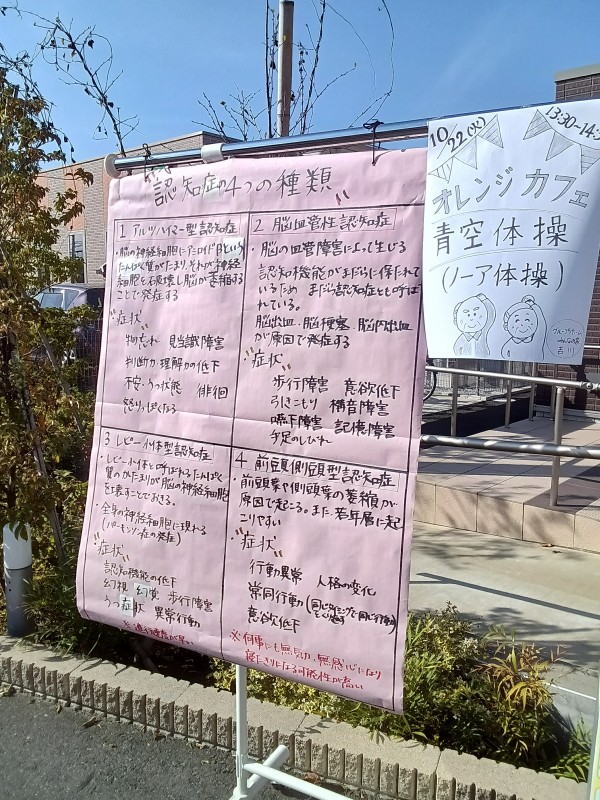 認知症の4つの種類
1 アルツハイマー型認知症
・脳の神経細胞にアミロイドβという
たんぱく質がたまり、それが神経
細胞を破壊し脳が萎縮する
ことで発症する
症状
物忘れ 見当識障害
判断力・理解力の低下
不安・うつ状態 徘徊
怒りっぽくなる
2 脳血管性認知症
・脳の血管障害によって生じる
認知機能がまだらに保たれて
いるため まだら認知症とも呼ばれ
ている。
脳出血・脳梗塞・脳内出血
が原因で発症する
症状
歩行障害 意欲低下
引きこもり 構音障害
嚥下障害 記憶障害
手足のしびれ
3 レビー小体型認知症
・レビー小体と呼ばれるたんぱく
質のかたまりが脳の神経細胞
を壊すことでおきる。
・全身の神経細胞に現れる
(パーキンソン症の発症)
症状
認知機能の低下
幻視 幻覚 歩行障害
うつ症状 異常行動
※進行速度が早い
4 前頭側頭型認知症
・前頭葉や側頭葉の萎縮が
原因で起こる。また、若年層に起
こりやすい
症状
行動異常 人格の変化
常同行動(同じタイミングで同じ行動を
意欲低下
※何事にも無気力、無感心になり
寝たきりになる可能性が高い
10/22(火)
13:30-14:
オレンジカフェ
青空体操
(ノーア体操)
グループホーム
みんなの家
吉川